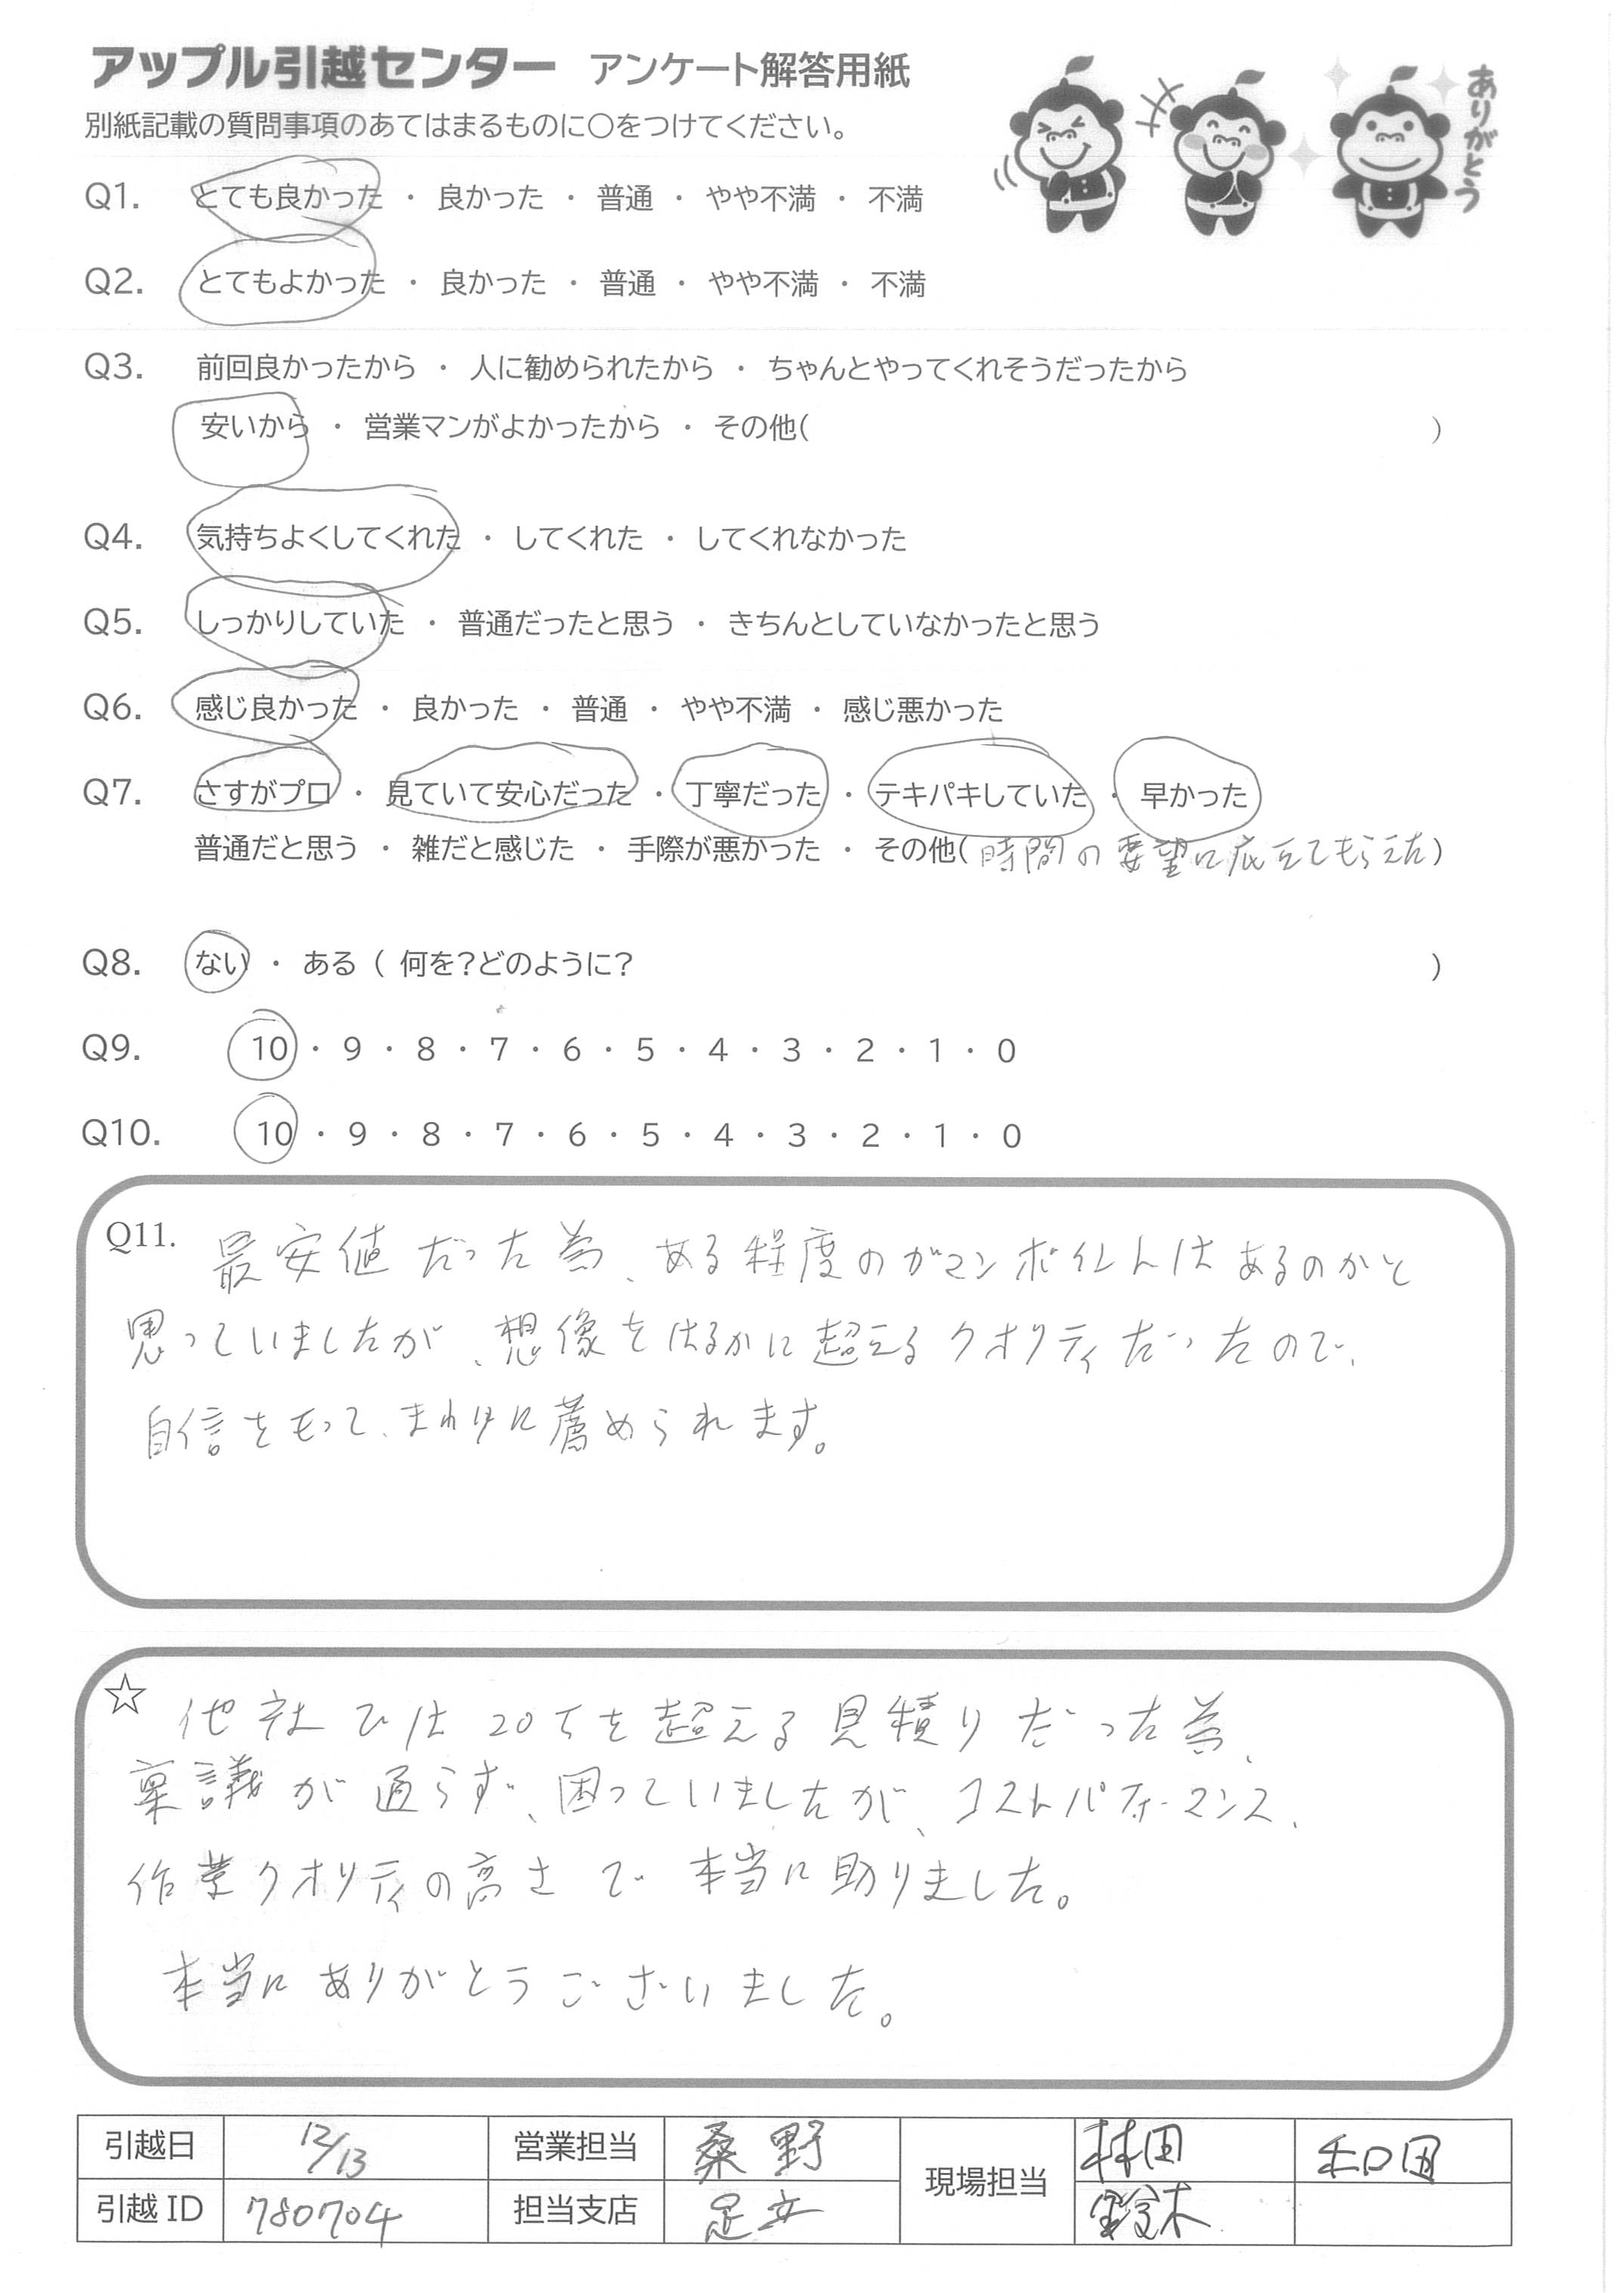 アップル引越センター アンケート解答用紙
別紙記載の質問事項のあてはまるものに○をつけてください。
ありがとう
Q1. とても良かった ・ 良かった ・ 普通 ・ やや不満 ・ 不満
Q2. とてもよかった ・ 良かった ・ 普通 ・ やや不満 ・ 不満
Q3. 前回良かったから ・ 人に勧められたから ・ ちゃんとやってくれそうだったから
安いから ・ 営業マンがよかったから ・ その他( )
Q4. 気持ちよくしてくれた ・ してくれた ・ してくれなかった
Q5. しっかりしていた ・ 普通だったと思う ・ きちんとしていなかったと思う
Q6. 感じ良かった ・ 良かった ・ 普通 ・ やや不満 ・ 感じ悪かった
Q7. さすがプロ ・ 見ていて安心だった ・ 丁寧だった ・ テキパキしていた ・ 早かった
普通だと思う ・ 雑だと感じた ・ 手際が悪かった ・ その他(時間の要望に応えてもらえた)
Q8. ない ・ ある ( 何を?どのように? )
Q9. 10 ・ 9 ・ 8 ・ 7 ・ 6 ・ 5 ・ 4 ・ 3 ・ 2 ・ 1 ・ 0
Q10. 10 ・ 9 ・ 8 ・ 7 ・ 6 ・ 5 ・ 4 ・ 3 ・ 2 ・ 1 ・ 0
Q11. 最安値だった為、ある程度のガマンポイントはあるのかと
思っていましたが、想像をはるかに超えるクオリティだったので、
自信をもって、まわりに薦められます。
☆ 他社では20万を超える見積りだった為、
稟議が通らず、困っていましたが、コストパフォーマンス、
作業クオリティの高さで本当に助りました。
本当にありがとうございました。
引越日 12/13 営業担当 桑野 現場担当 林田 和田
引越ID 780704 担当支店 足立 鈴木